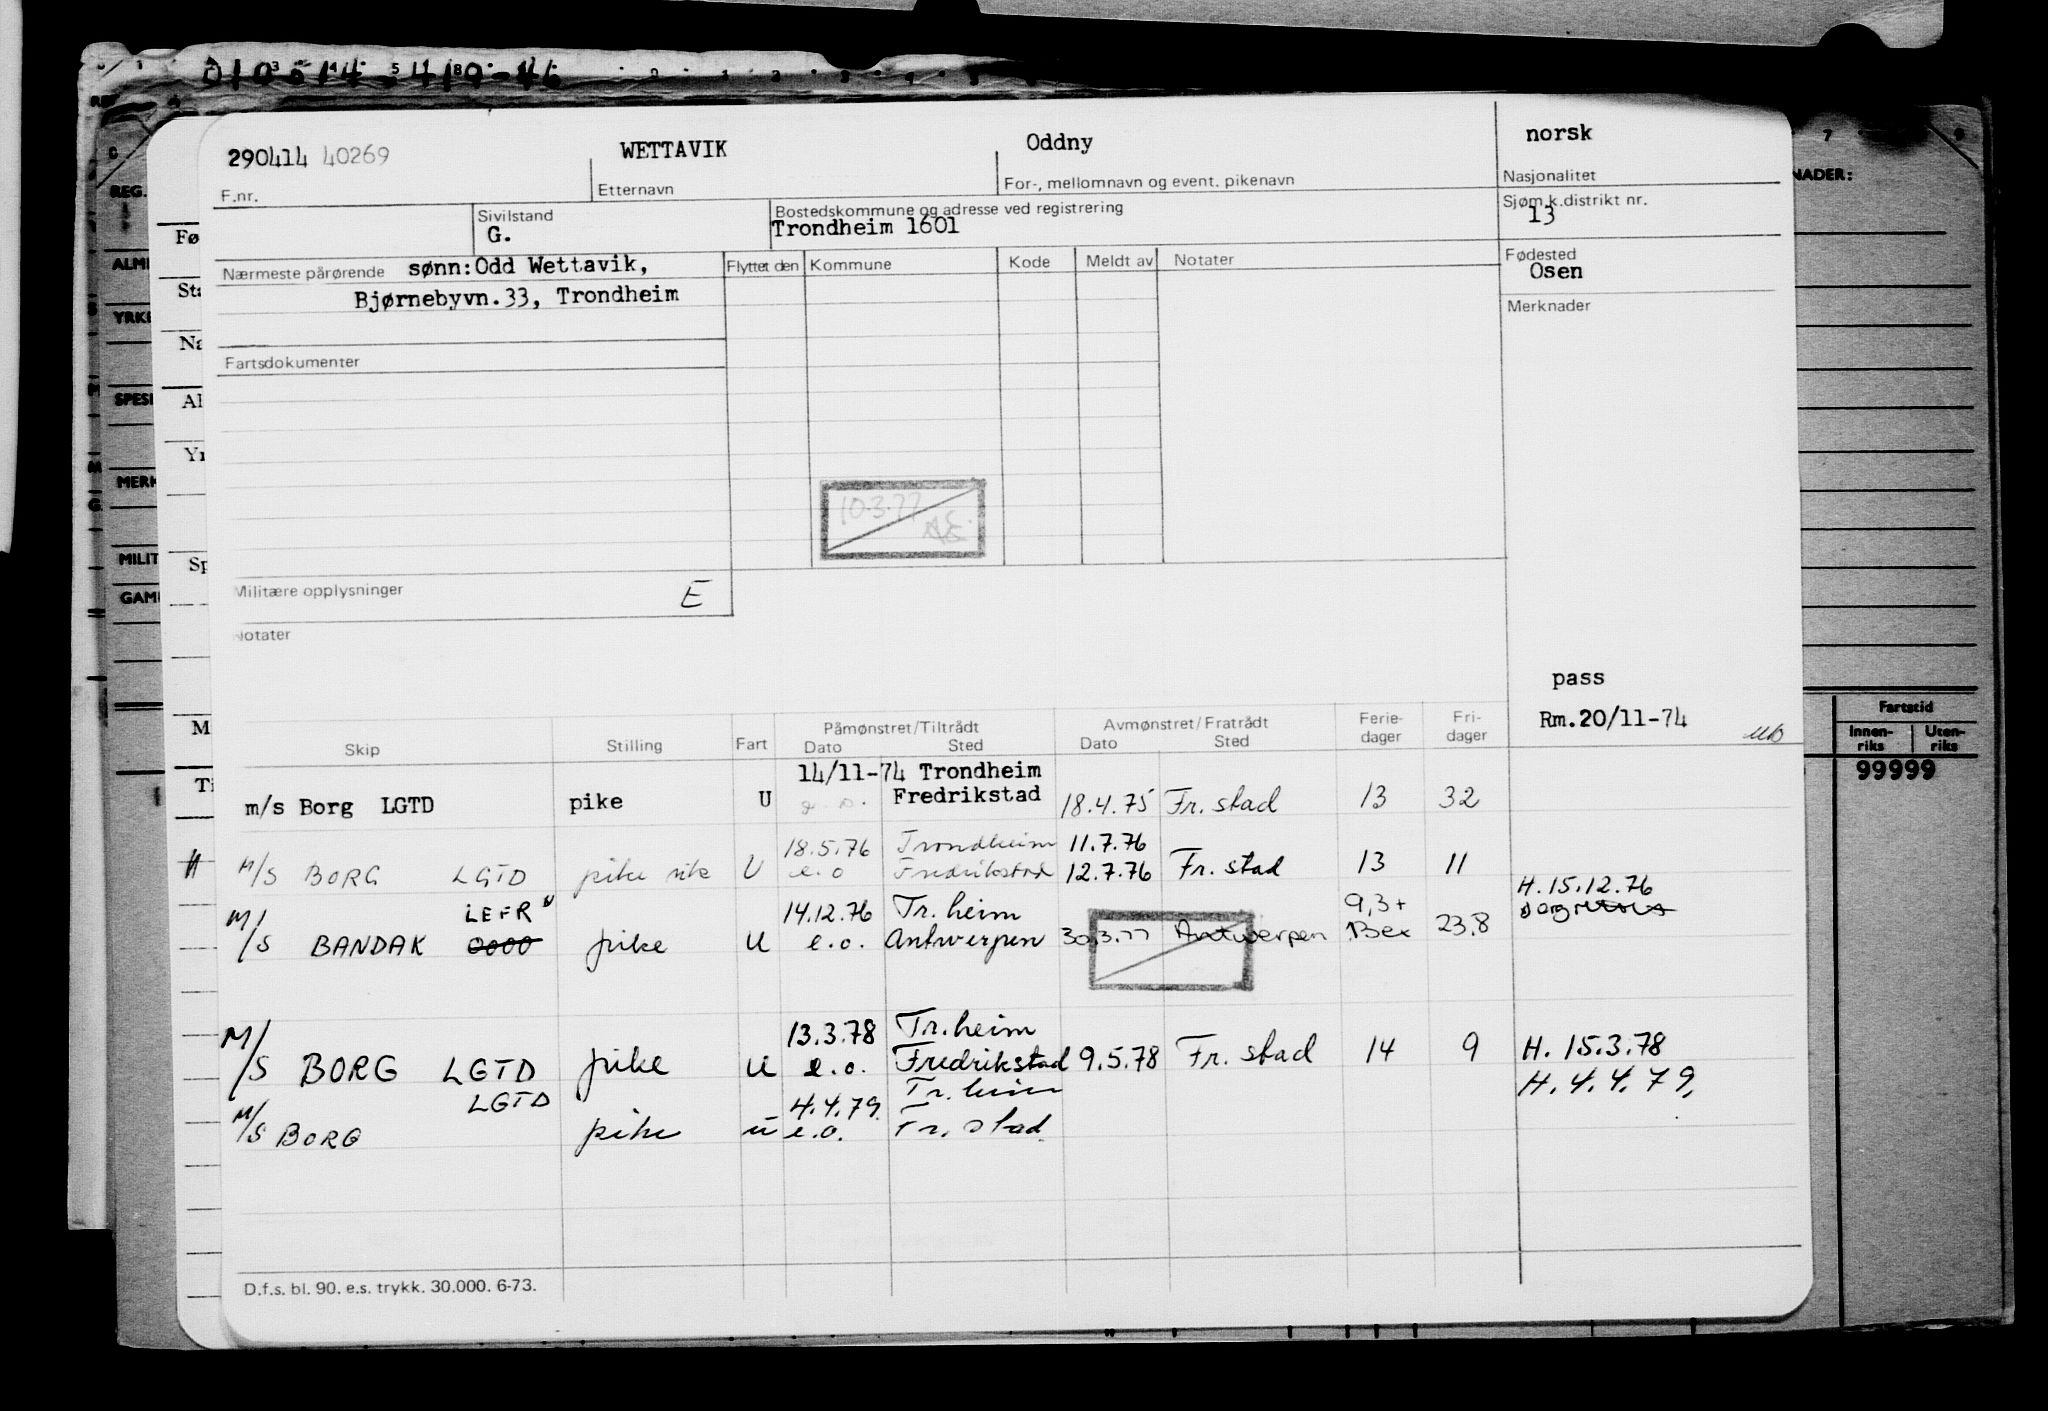 010514 5419-46
290414 40269
WETTAVIK
Oddny
norsk
F.nr.
Etternavn
For-, mellomnavn og event. pikenavn
Nasjonalitet
Sivilstand
G.
Bostedskommune og adresse ved registrering
Trondheim 1601
Sjøm.k.distrikt nr.
13
Nærmeste pårørende sønn:Odd Wettavik,
Bjørnebyvn.33, Trondheim
Flyttet den
Kommune
Kode
Meldt av
Notater
Fødested
Osen
Merknader
Fartsdokumenter
10.3.77
Militære opplysninger
E
Notater
pass
Rm.20/11-74
Skip
Stilling
Fart
Påmønstret/Tiltrådt
Dato
Sted
Avmønstret/Fratrådt
Dato
Sted
Ferie-
dager
Fri-
dager
14/11-74 Trondheim
m/s Borg LGTD pike U Fredrikstad 18.4.75 Fr.stad 13 32
18.5.76 Trondheim 11.7.76
M/S BORG LGTD pike vik U e.o Fredrikstad 12.7.76 Fr.stad 13 11
H. 15.12.76
LEFR 14.12.76 Tr.heim 9,3+
M/S BANDAK 0000 pike U e.o. Antwerpen 30.3.77 Antwerpen Bex 23,8
13.3.78 Tr.heim
M/S BORG LGTD pike U e.o. Fredrikstad 9.5.78 Fr.stad 14 9 H. 15.3.78
LGTD 4.4.79. Tr.heim H. 4.4.79.
M/S BORG pike u e.o. Fr.stad
D.f.s. bl. 90. e.s. trykk. 30.000. 6-73.
REG.
YRKE
SPESI
MERK
MILIT
Fartstid
Innen-
riks
Uten-
riks
99999
NADER: